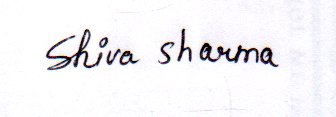 Shiva sharma